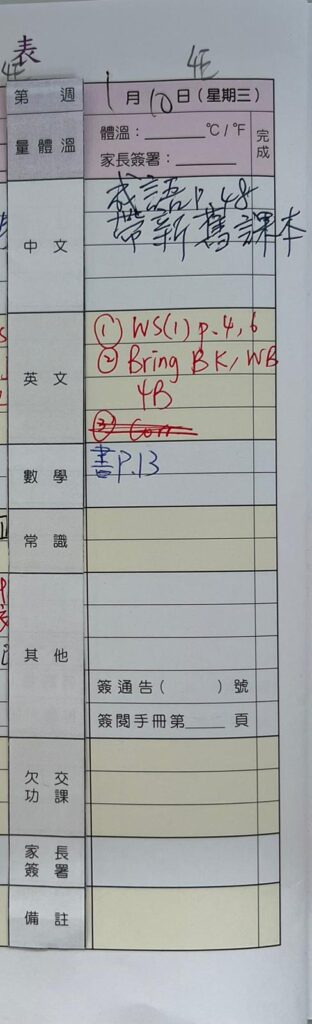 表
4E
第 週 1月10日(星期三)
量體溫 體溫:______℃/℉ 完成
家長簽署:______
中文 成語 p.48
帶新舊課本
英文 ① WS(1) p.4, 6
② Bring BK, WB
4B
③ Corr
數學 書P.13
常識
其他
簽通告( )號
簽閱手冊第____頁
欠交功課
家長簽署
備註